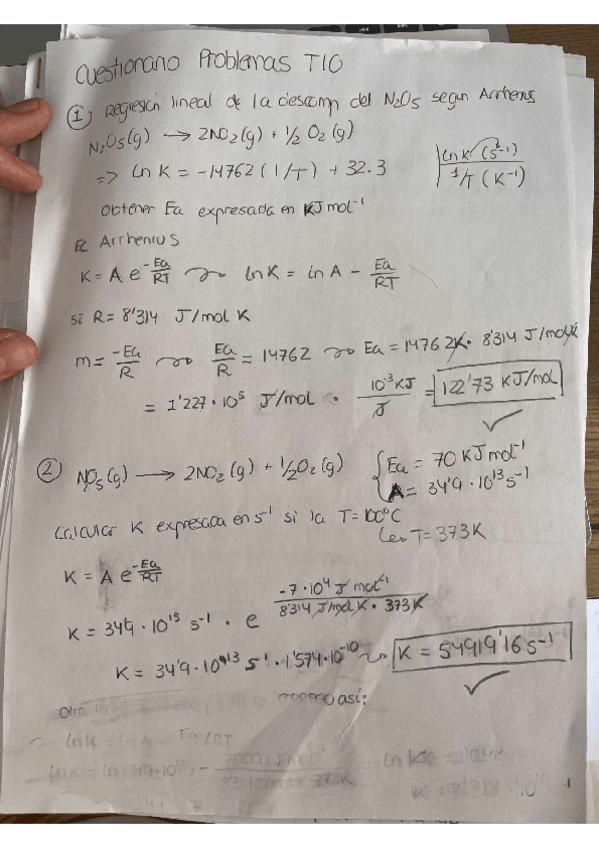 Cuestionario Problemas T10
① Regresión lineal de la descomp del N2O5 según Arrhenius
N2O5(g) → 2NO2(g) + 1/2 O2(g)
=> ln K = -14762 (1/T) + 32.3
ln K (s^-1)
1/T (K^-1)
Obtener Ea expresada en KJ mol^-1
Ec Arrhenius
K = A e^(-Ea/RT) ~> ln K = ln A - Ea/RT
si R = 8'314 J/mol K
m = -Ea/R ~> Ea/R = 14762 ~> Ea = 14762K · 8'314 J/mol K
= 1'227·10^5 J/mol · 10^-3 KJ/J = 122'73 KJ/mol
② N2O5(g) → 2NO2(g) + 1/2 O2(g)
Ea = 70 KJ mol^-1
A = 34'9·10^13 s^-1
Calcular K expresada en s^-1 si la T = 100°C
T = 373K
K = A e^(-Ea/RT)
K = 349·10^15 s^-1 · e^(-7·10^4 J mol^-1 / 8'314 J/mol K · 373K)
K = 34'9·10^13 s^-1 · 1'574·10^-10 ~> K = 54919'16 s^-1
así: